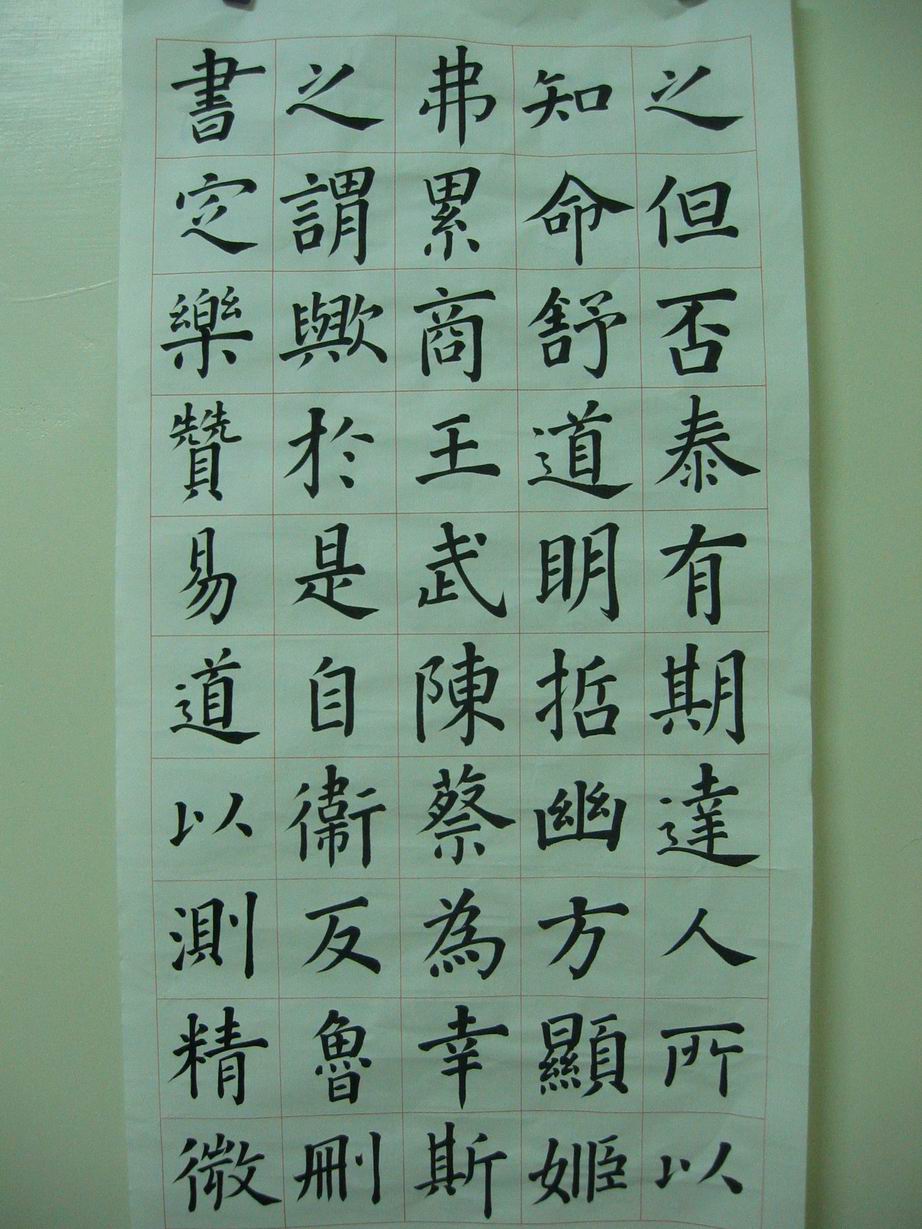 之但否泰有期達人所以
知命舒道明哲幽方顯姬
弗累商王武陳蔡為幸斯
之謂歟於是自衞反魯刪
書定樂贊易道以測精微